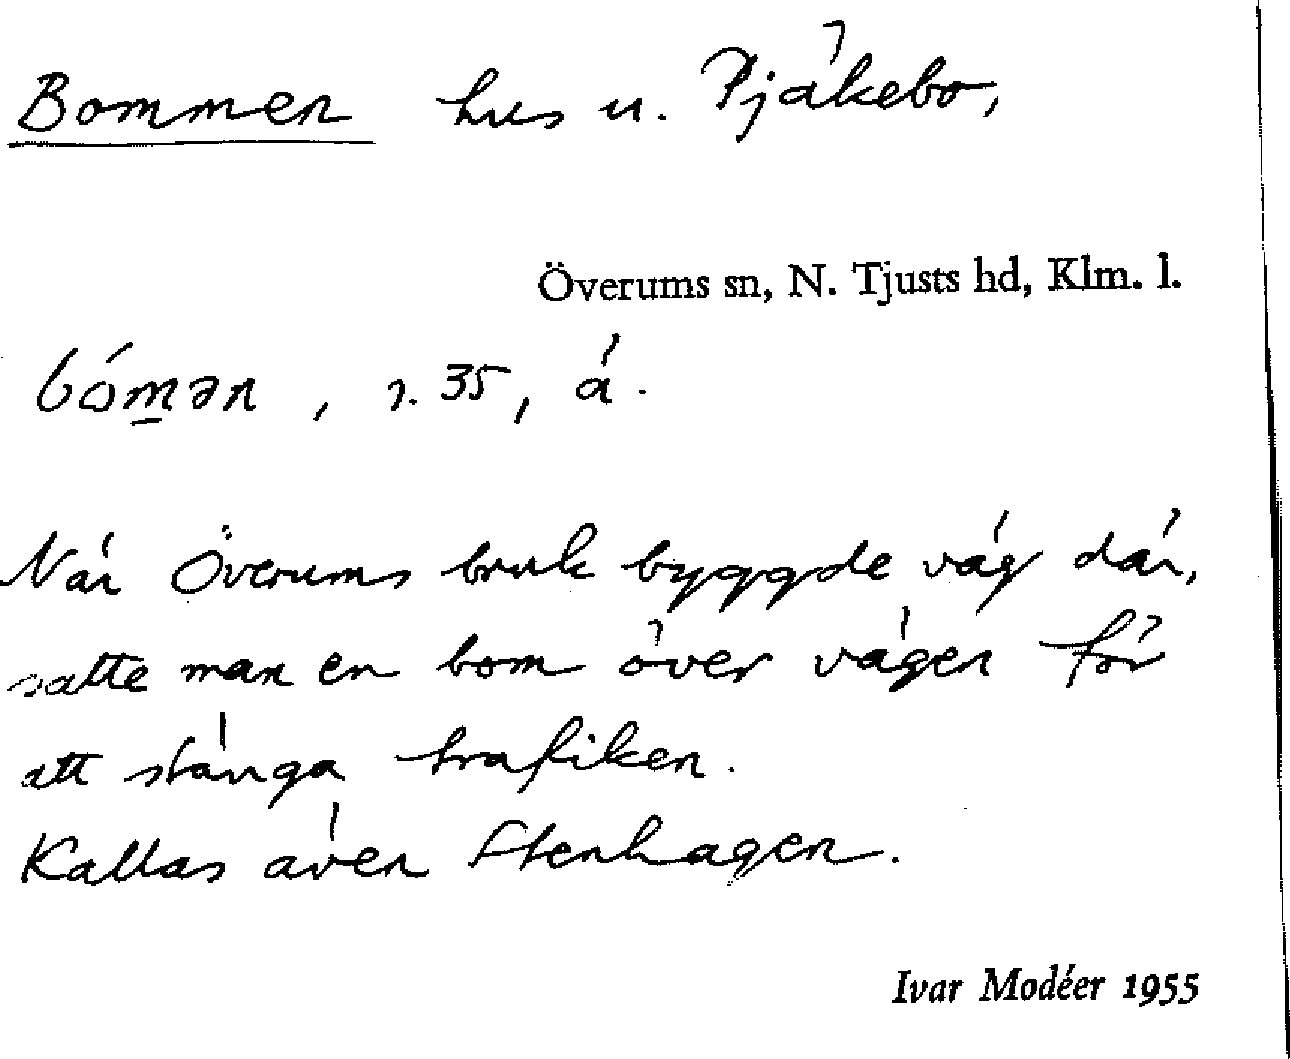 Bommen hus u. Pjäkebo,
Överums sn, N. Tjusts hd, Klm. l.
bómən, 2. 35, å.
När Överums bruk byggde väg där,
satte man en bom över vägen för
att stänga trafiken.
Kallas även Stenhagen.
Ivar Modéer 1955